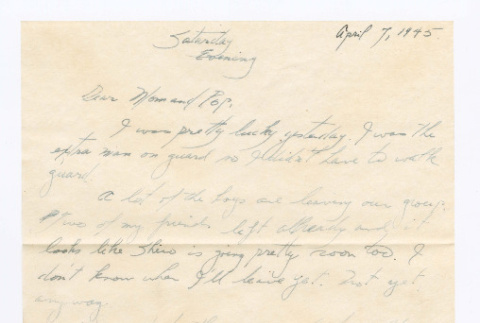 Saturday
Evening
April 7, 1945.
Dear Mom and Pop:
I was pretty lucky yesterday. I was the
extra man on guard so I didn't have to walk
guard.
A lot of the boys are leaving our group.
Two of my friends left already and it
looks like Shiro is going pretty soon too. I
don't know when I'll leave yet. Not yet
anyway.